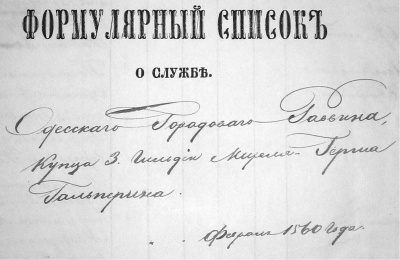 ФОРМУЛЯРНЫЙ СПИСОКЪ
О СЛУЖБѢ.
Одесскаго Городоваго Раввина,
Купца 3. Гильдіи Михеля-Герша
Гальперина.
1860 года.